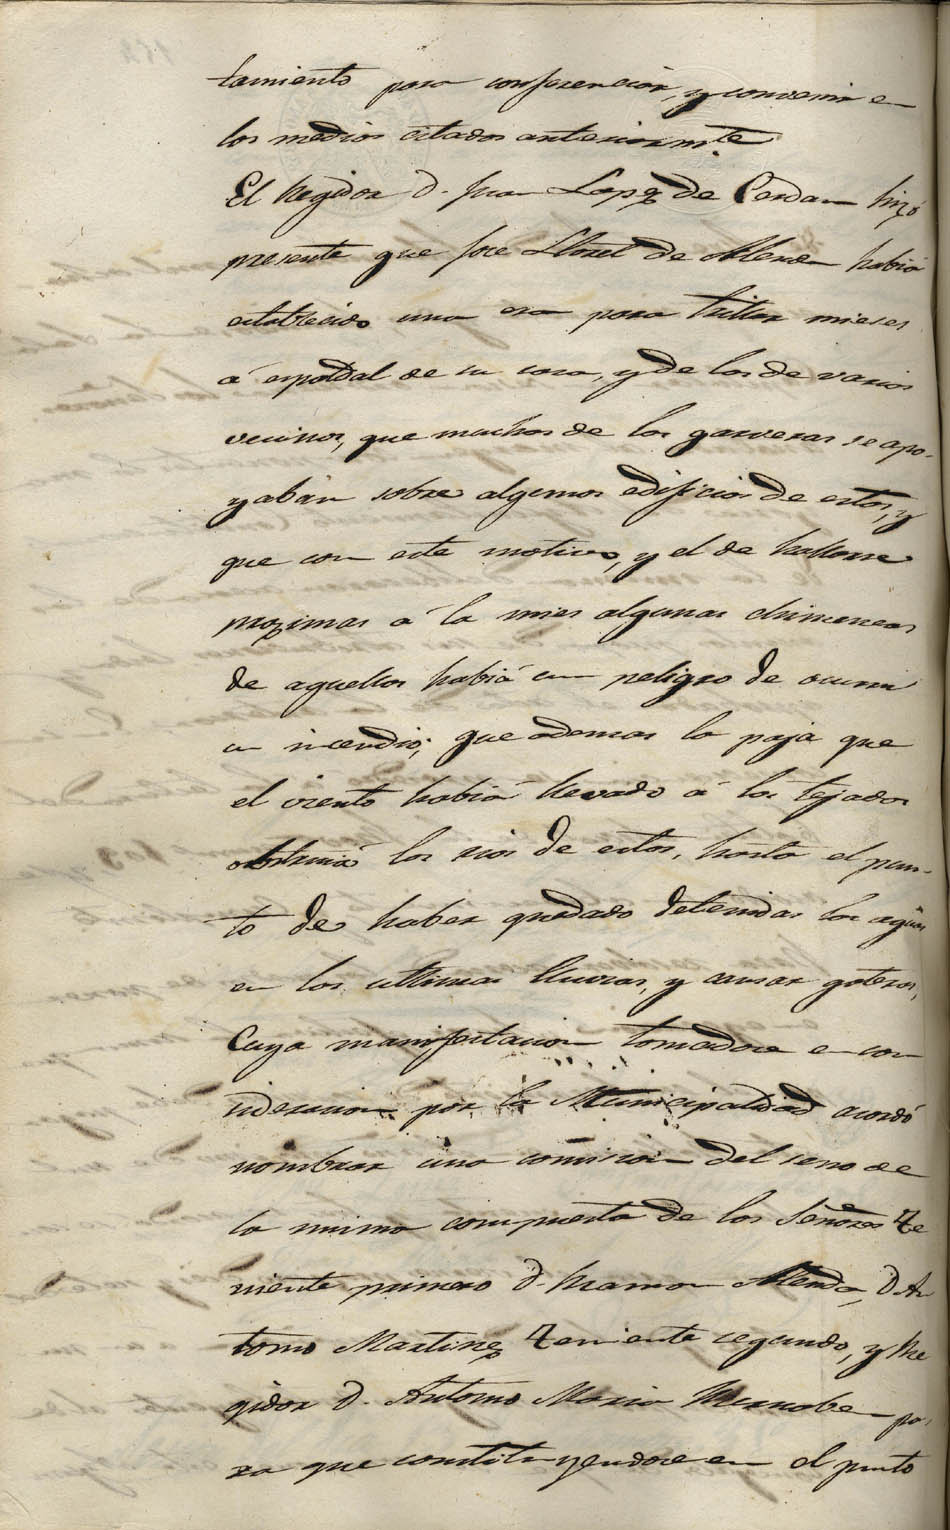 tamiento para conferenciar, y convenir en
los medios citados anteriormte
El Regidor D. Juan Lopz de Cerdan hizó
presente que Jose Lloret de Alenda habia
establecido una era para trillar mieses
á espaldal de su casa, y de las de varios
vecinos, que muchas de las garveras se apo-
yaban sobre algunos edificios de estos, y
que con este motivo, y el de hallarse
proximas á la mies algunas chimeneas
de aquellos habiá un peligro de ocurrir
un incendio; que ademas la paja que
el viento habiá llevado á los tejados
obstruiá los rios de estos, hasta el pun-
to de haber quedado detenidas las aguas
en las ultimas lluvias, y causar goteras,
Cuya manifestacion tomadose en con
sideracion por la Municipalidad acordó
nombrar una comision del seno de
la misma compuesta de los Señores Te
niente primero D. Ramon Alenda, D. An
tonio Martinez Teniente segundo, y Re
gidor D. Antonio Maria Bernabe pa-
ra que constituyendose en el punto